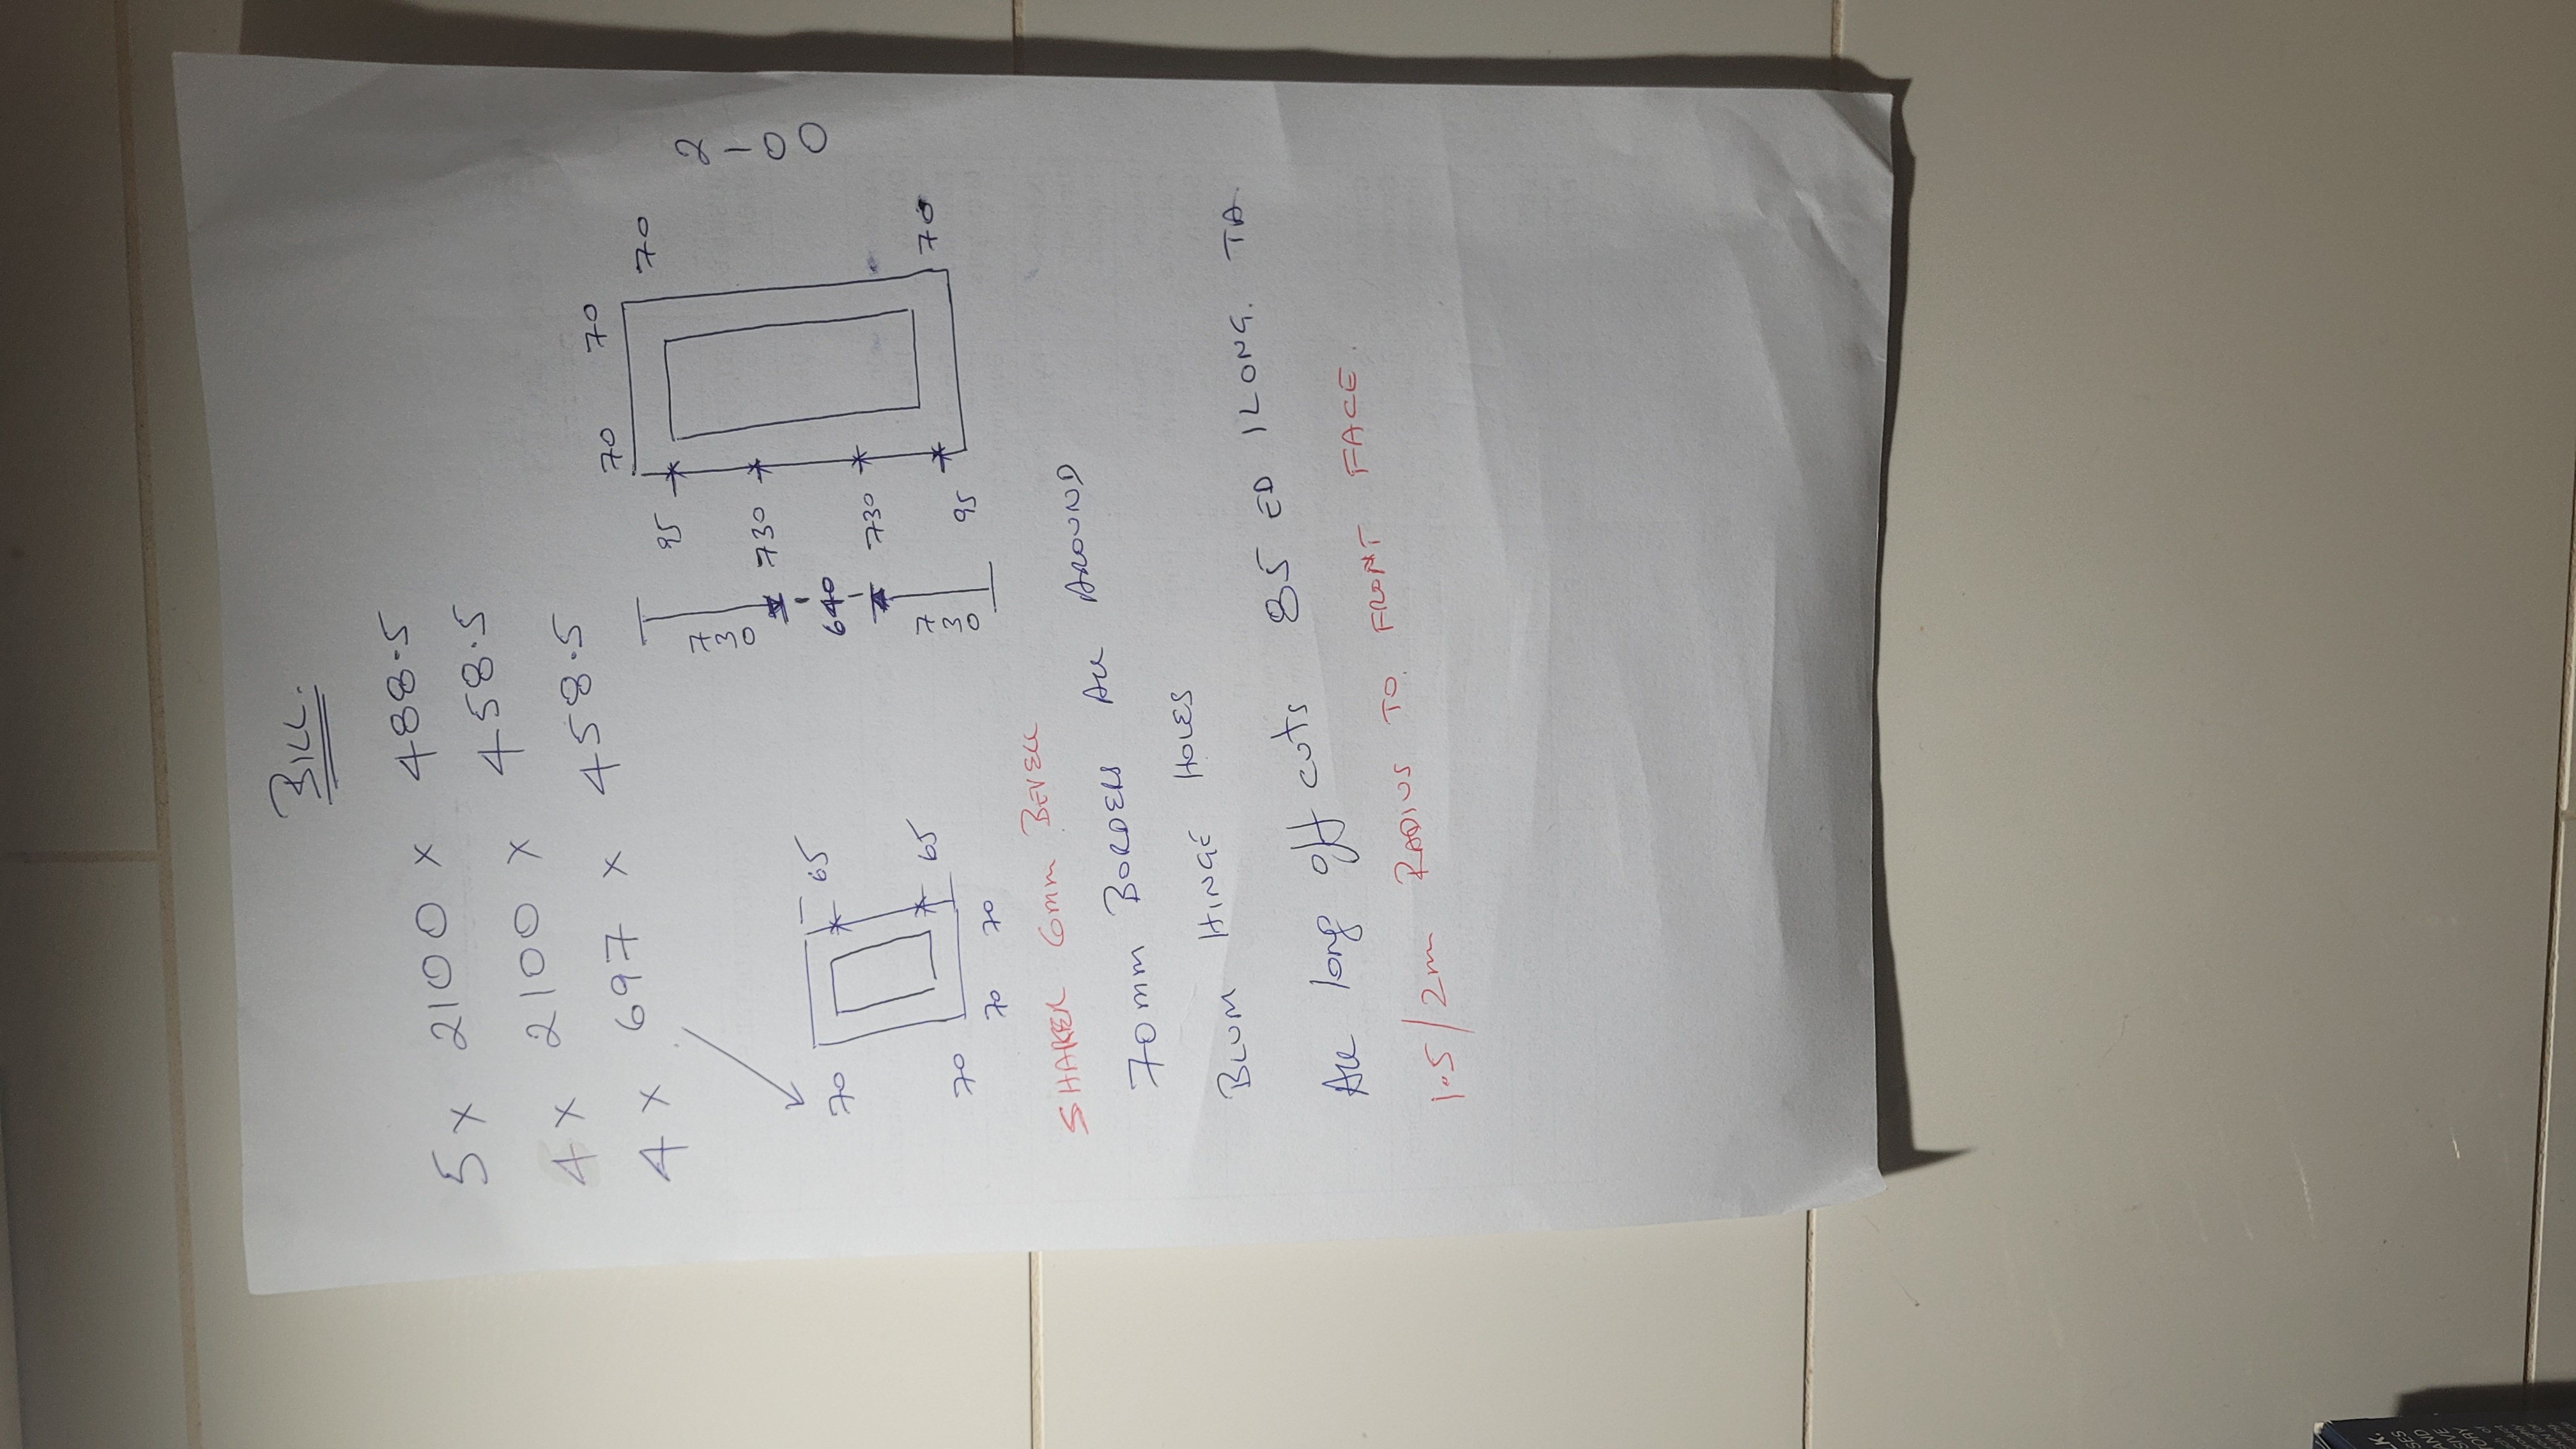 BILL.
5 x 2100 x 488.5
4 x 2100 x 458.5
4 x 697 x 458.5
70 70
70
95
730
730
95
70
2100
730
640
730
65
65
70
70
70 70
SHAKER 6mm BEVELL
70mm BORDERS All AROUND
BLUM HINGE HOLES
All long off cuts 85 ED 1LONG. TA.
1.5/2m RADIUS TO. FRONT FACE.